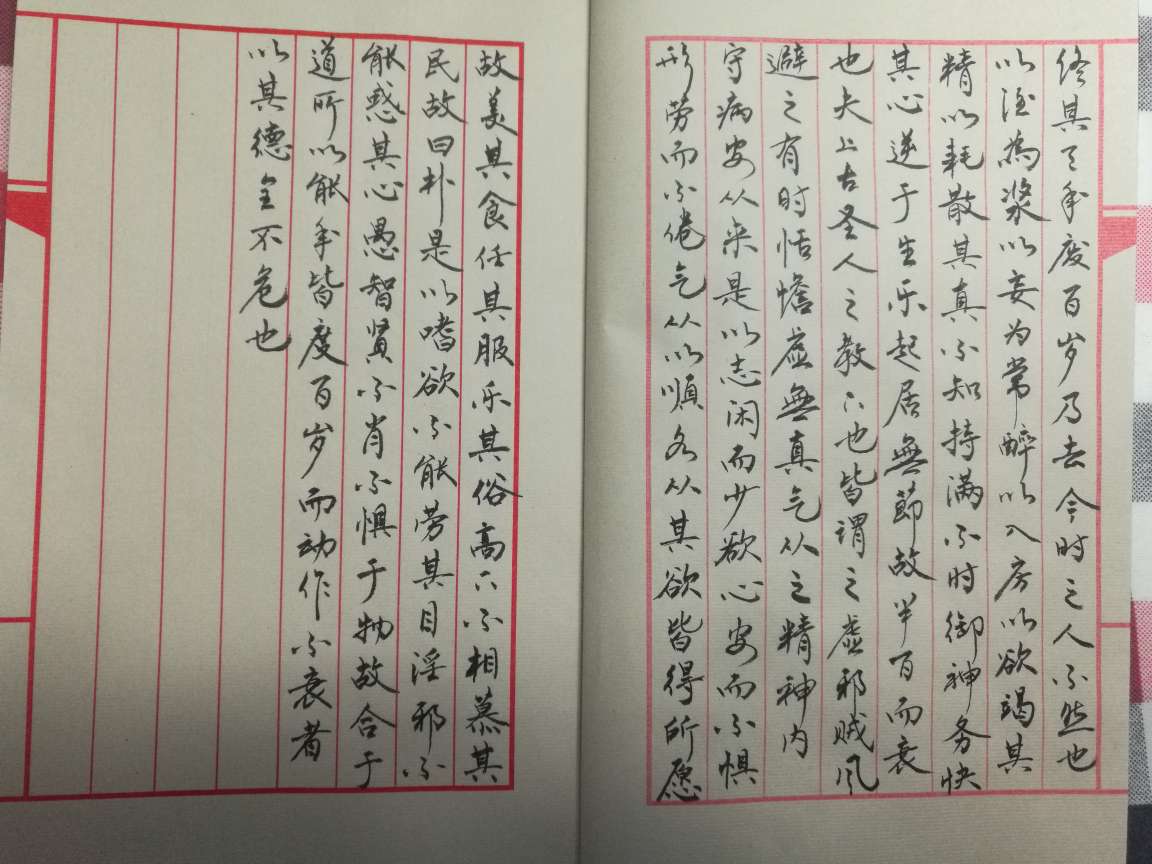 终其天年度百岁乃去今时之人不然也
以酒為浆以妄为常醉以入房以欲竭其
精以耗散其真不知持满不时御神务快
其心逆于生乐起居無節故半百而衰
也夫上古圣人之教下也皆谓之虚邪贼风
避之有时恬惔虚無真气从之精神内
守病安从来是以志闲而少欲心安而不惧
形劳而不倦气从以顺各从其欲皆得所愿
故美其食任其服乐其俗高下不相慕其
民故曰朴是以嗜欲不能劳其目淫邪不
能惑其心愚智贤不肖不惧于物故合于
道所以能年皆度百岁而动作不衰者
以其德全不危也